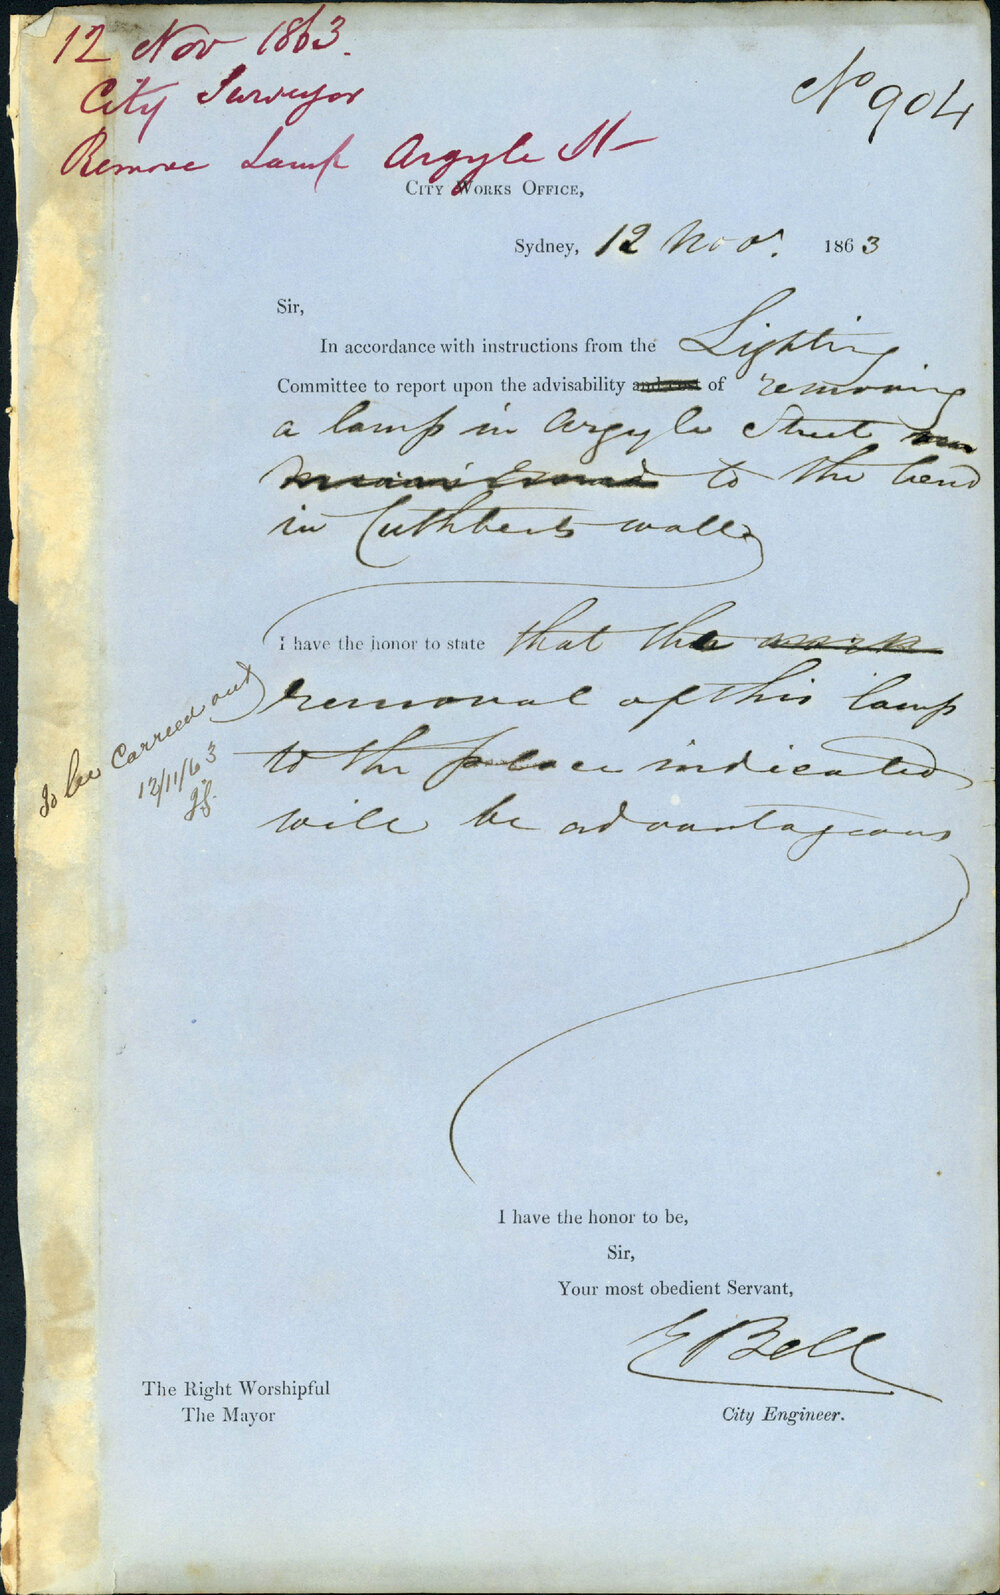 12 Nov 1863.
City Surveyor
Remove Lamp Argyle St
No 904
CITY WORKS OFFICE,
Sydney, 12 Nov. 1863
Sir,
In accordance with instructions from the Lighting
Committee to report upon the advisability and cost of removing
a lamp in Argyle Street
to the bend
in Cuthberts wall
I have the honor to state that the work
removal of this lamp
to the place indicated
will be advantageous
To be Carried out
12/11/63
I have the honor to be,
Sir,
Your most obedient Servant,
E Bell
City Engineer.
The Right Worshipful
The Mayor